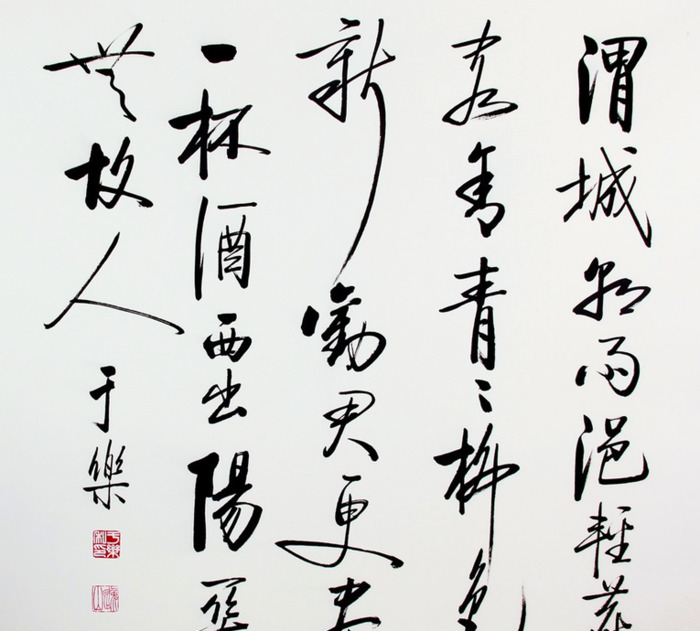 渭城朝雨浥輕塵
客舍青〻柳色
新勸君更盡
一杯酒西出陽關
無故人
于樂